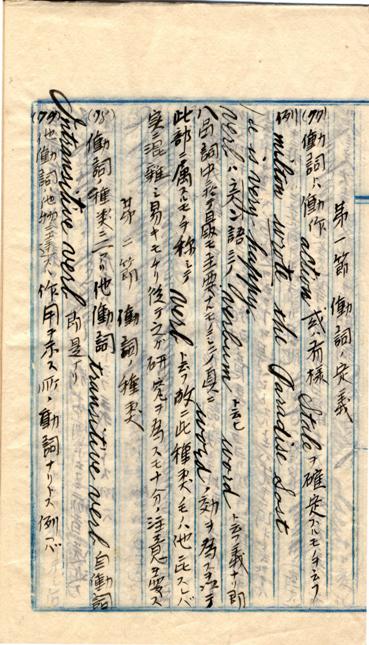 第一節 働詞ノ定義
(77) 働詞ハ働作 action 或ハ有様 State ヲ確定スルモノヲ云フ
例 milton wrote the Paradise Lost
is very happy.
verb ハ 語ニテ verbum ト云ヒ word ト云フ義ナリ即
八品詞中ニテ最モ主要ナモノニシテ真ニ word ノ効ヲ為ス
此部ニ属スルモノヲ称シテ verb ト云フ故ニ此種類モノハ他ニ比スレバ
混雑シ易キモノナリ従テ之ガ研究ヲ為スモ十分ノ注意ヲ要ス
第二節 働詞ノ種類
(78) 働詞ノ種類ニ二アリ他働詞 transitive verb 自働詞
Intransitive verb 即是ナリ
(79) 他働詞 作用ヲ示ス所ノ働詞ナリトス例ヘバ